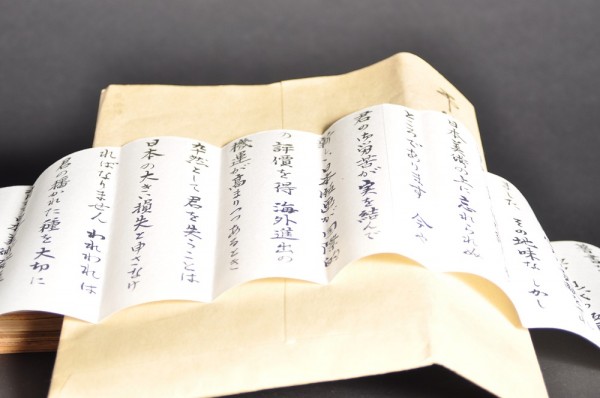 その地味な しかし
日本美術の上に忘れられぬ
ところであります 今や
君の御労苦が実を結んで
日本版画が国際的
の評価を得 海外進出の
機運が高まりつつあるとき
突然として君を失うことは
日本の大きい損失と申さなけ
ればなりません われわれは
君の播かれた種を大切に